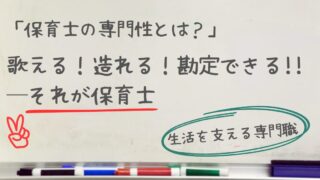 「保育士の専門性とは?」
歌える!造れる!勘定できる!!
―それが保育士
生活を支える専門職